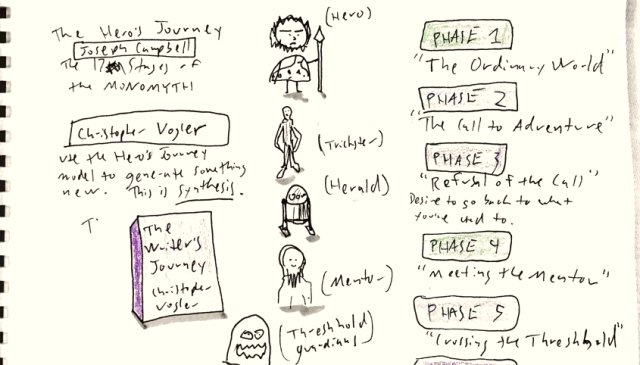 The Hero's Journey
Joseph Campbell
The 17 Stages of
the MONOMYTH
Christopher Vogler
use the Hero's Journey
model to generate something
new. This is synthesis.
T
The
Writer's
Journey
Christopher
Vogler
(Hero)
(Trickster)
(Herald)
(Mentor)
(Threshhold
guardians)
PHASE 1
"The Ordinary World"
PHASE 2
"The Call to Adventure"
PHASE 3
"Refusal of the Call"
Desire to go back to what
you're used to.
PHASE 4
"Meeting the Mentor"
PHASE 5
"Crossing the Threshhold"